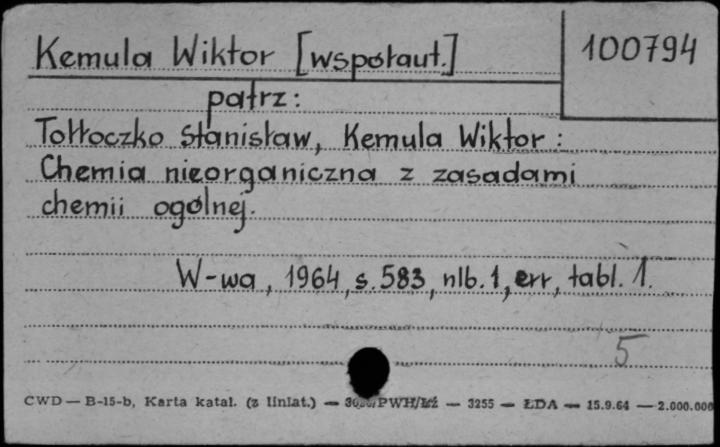 Kemula Wiktor [współaut.]
100794
patrz:
Tołłoczko Stanisław, Kemula Wiktor:
Chemia nieorganiczna z zasadami
chemii ogólnej.
W-wa, 1964, s. 583, nlb. 1, err, tabl. 1.
5
CWD — B-15-b, Karta katal. (z liniat.) — PWH/Łź — 3255 — ŁDA — 15.9.64 — 2.000.000